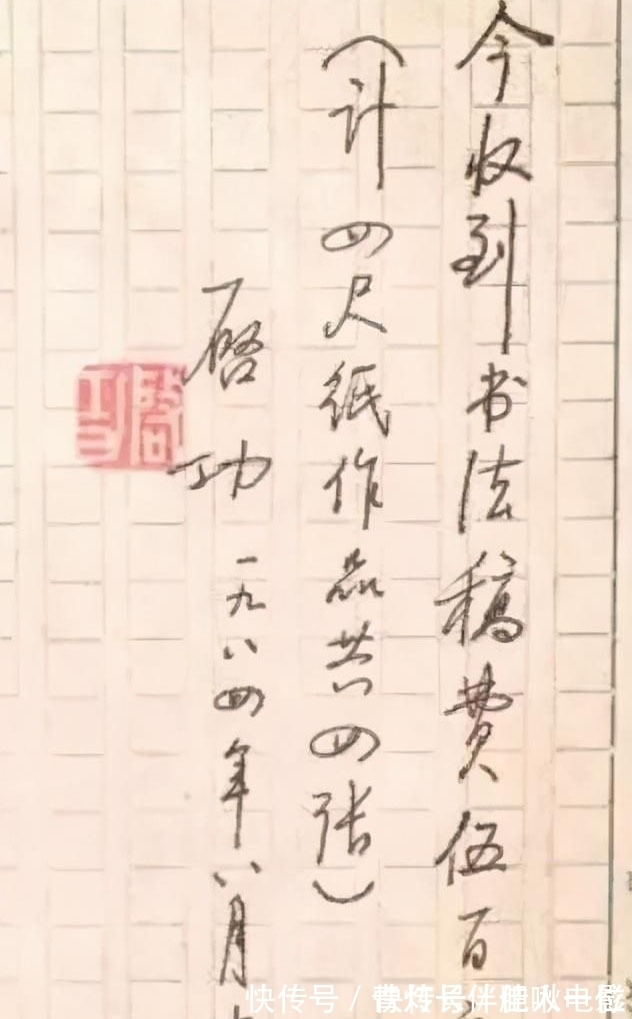 今收到书法稿费伍百
(计四尺纸作品共四张)
启功 一九八四年八月
启功
快传号/